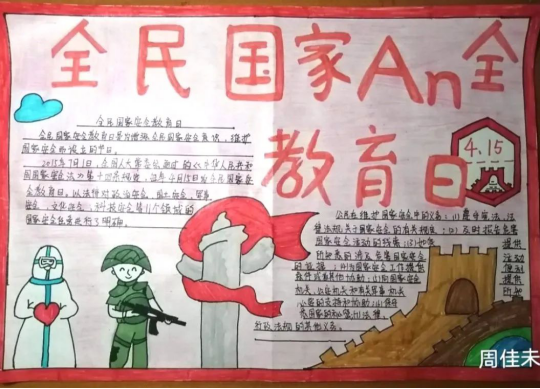 全民国家An全
教育日
4.15
全民国家安全教育日
全民国家安全教育日是为增强全民国家安全意识，维护
国家安全而设立的节日。
2015年7月1日，全国人大常委会通过的《中华人民共和
国国家安全法》第十四条规定，每年4月15日为全民国家安
全教育日。
公民在维护国家安全中的义务：(1)遵守宪法、法
律法规关于国家安全的有关规定；(2)及时报告危害
国家安全活动的线索；(3)如实 提供
所知悉的涉及危害国家安全 活动
的证据；(4)为国家安全工作提供 便利
条件或者其他协助；(5)向国家安全
机关、公安机关和有关军事机关 提供
必要的支持和协助；(6)保守 所知
悉的国家秘密；(7)法律、
行政法规规定的其他义务。
周佳未